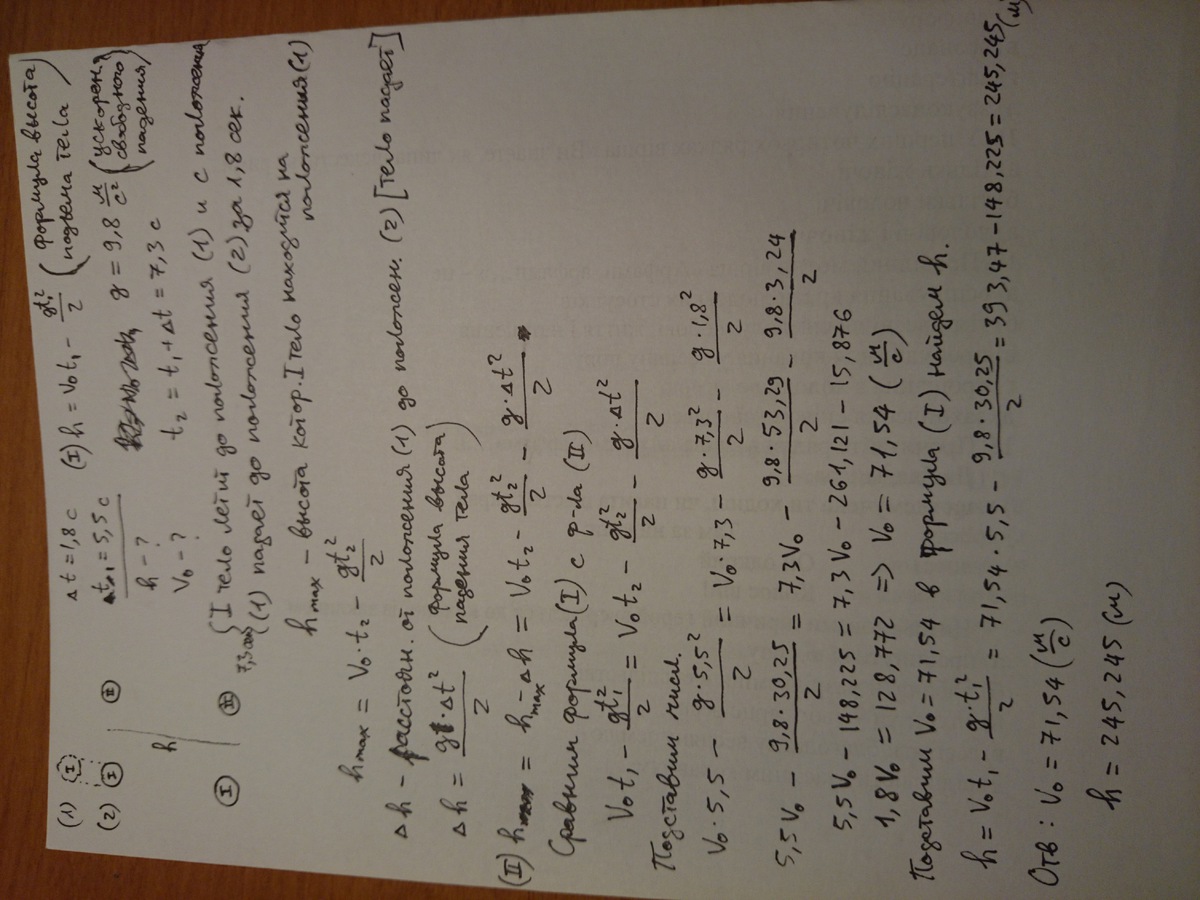 (1) (I)
(2) (I) (II)
h
(I) (II)
Δt = 1,8 c
t₁ = 5,5 c
h - ?
V₀ - ?
(I) h = V₀t₁ - gt₁²/2 (формула высота подъема тела)
g = 9,8 м/с² (ускорен. свободного падения)
t₂ = t₁ + Δt = 7,3 c
7,3 сек { I тело летит до положения (1) и с положения
(1) падает до положения (2) за 1,8 сек.
h max - высота котор. I тело находится на положения (1)
h max = V₀ · t₂ - gt₂²/2
Δh - расстоян. от положения (1) до положен. (2) [тело падает]
Δh = g · Δt²/2 (формула высота падения тела)
(II) h = h max - Δh = V₀t₂ - gt₂²/2 - g · Δt²/2
Сравним формула (I) с ф-ла (II)
V₀t₁ - gt₁²/2 = V₀t₂ - gt₂²/2 - g · Δt²/2
Подставим числ.
V₀ · 5,5 - g · 5,5²/2 = V₀ · 7,3 - g · 7,3²/2 - g · 1,8²/2
5,5V₀ - 9,8 · 30,25/2 = 7,3V₀ - 9,8 · 53,29/2 - 9,8 · 3,24/2
5,5V₀ - 148,225 = 7,3V₀ - 261,121 - 15,876
1,8V₀ = 128,772 => V₀ = 71,54 (м/с)
Подставим V₀ = 71,54 в формула (I) найдем h.
h = V₀t₁ - g · t₁²/2 = 71,54 · 5,5 - 9,8 · 30,25/2 = 393,47 - 148,225 = 245,245 (м)
Отв: V₀ = 71,54 (м/с)
h = 245,245 (м)